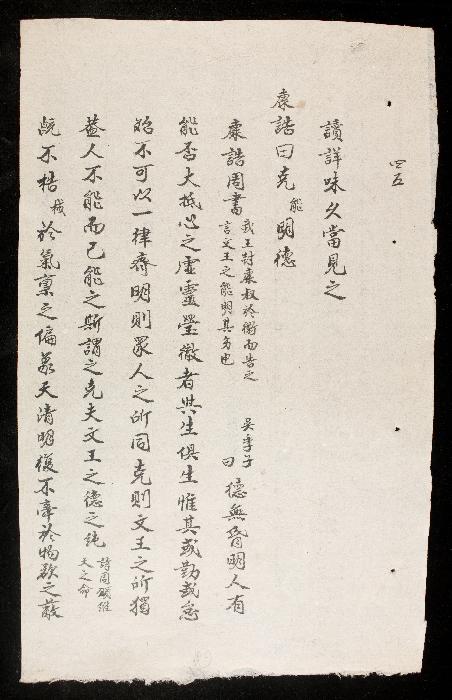 四五
讀詳味久當見之
康誥曰克能明德
康誥周書武王封康叔於衛而告之言文王之能明其德也吳季子曰德無昏明人有
能否大抵心之虛靈瑩徹者與生俱生惟其或勤或怠
始不可以一律齊明則眾人之所同克則文王之所獨
蓋人不能而已能之斯謂之克夫文王之德之純詩周頌維天之命
既不梏梏於氣稟之偏天清明復不牽於物欲之蔽